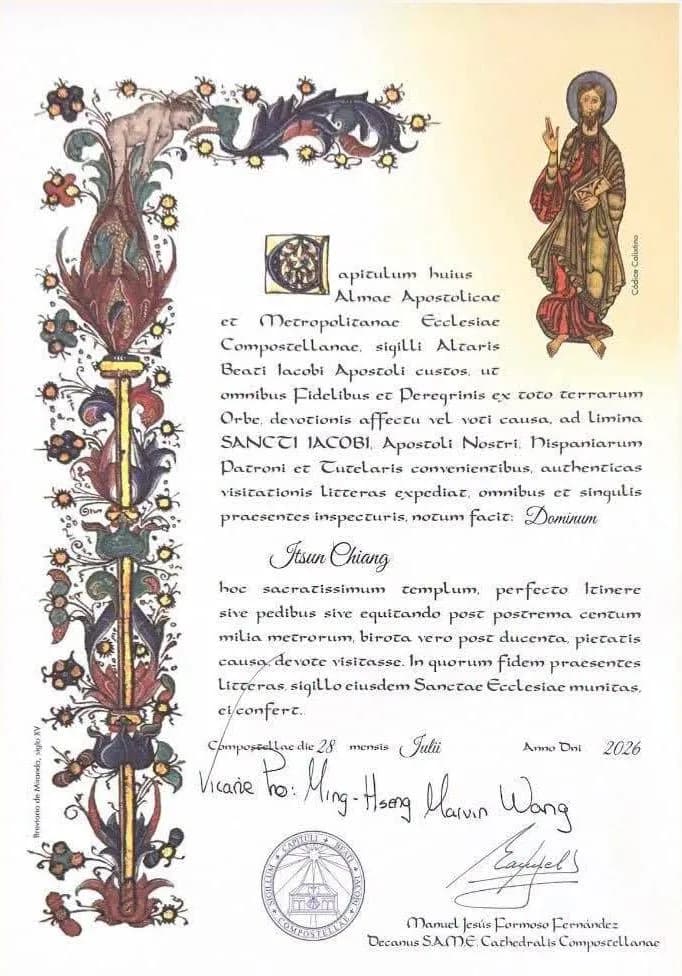 Capitulum huius
Almae Apostolicae
et Metropolitanae Ecclesiae
Compostellanae, sigilli Altaris
Beati Iacobi Apostoli custos, ut
omnibus Fidelibus et Peregrinis ex toto terrarum
Orbe, devotionis affectu vel voti causa, ad limina
SANCTI IACOBI, Apostoli Nostri, Hispaniarum
Patroni et Tutelaris convenientibus, authenticas
visitationis litteras expediat, omnibus et singulis
praesentes inspecturis, notum facit: Dominum
Itsun Chiang
hoc sacratissimum templum, perfecto Itinere
sive pedibus sive equitando post postrema centum
milia metrorum, birota vero post ducenta, pietatis
causa, devote visitasse. In quorum fidem praesentes
litteras, sigillo eiusdem Sanctae Ecclesiae munitas,
ei confert.
Compostellae die 28 mensis Julii Anno Dni 2026
Vicarie Pro: Ming-Hseng Marvin Wang
SIGILLUM CAPITULI BEATI IACOBI COMPOSTELLAE
Manuel Jesús Formoso Fernández
Decanus S.A.M.E. Cathedralis Compostellanae
Códice Calixtino
Breviario de Miranda, siglo XV